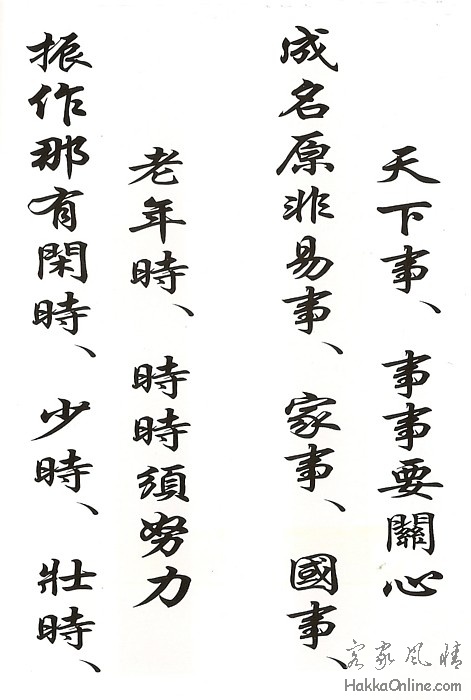 振作那有閑時、少時、壯時、
老年時、時時須努力
成名原非易事、家事、國事、
天下事、事事要關心
客家风情
HakkaOnline.com